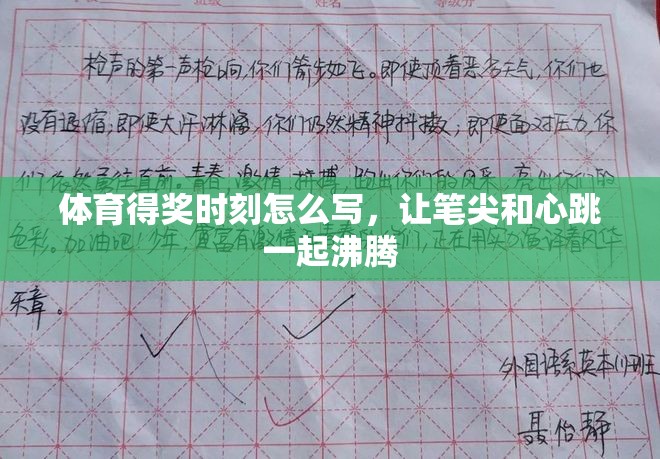 枪声的第一声枪响,你们箭步如飞。即使顶着恶劣天气,你们也
没有退缩;即使大汗淋漓,你们仍然精神抖擞;即使面对压力,你
们依然勇往直前。青春、激情、拼搏,跑出你们的风采,亮出你们的
体育得奖时刻怎么写,让笔尖和心跳
一起沸腾
色彩。加油吧!少年,
正在用实力演绎着风华
乐章。
外国语系英本
聂怡静